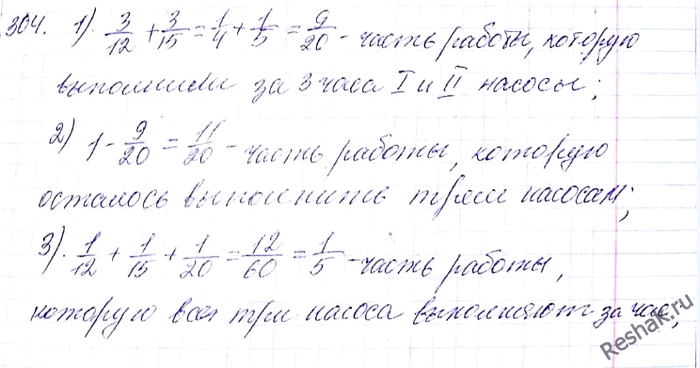 304. 1). 3/12 + 3/15 = 1/4 + 1/5 = 9/20 - часть работы, которую
выполнили за 3 часа I и II насосы;
2) 1 - 9/20 = 11/20 - часть работы, которую
осталось выполнить трем насосам;
3). 1/12 + 1/15 + 1/20 = 12/60 = 1/5 - часть работы,
которую все три насоса выполняют за час;
Reshak.ru